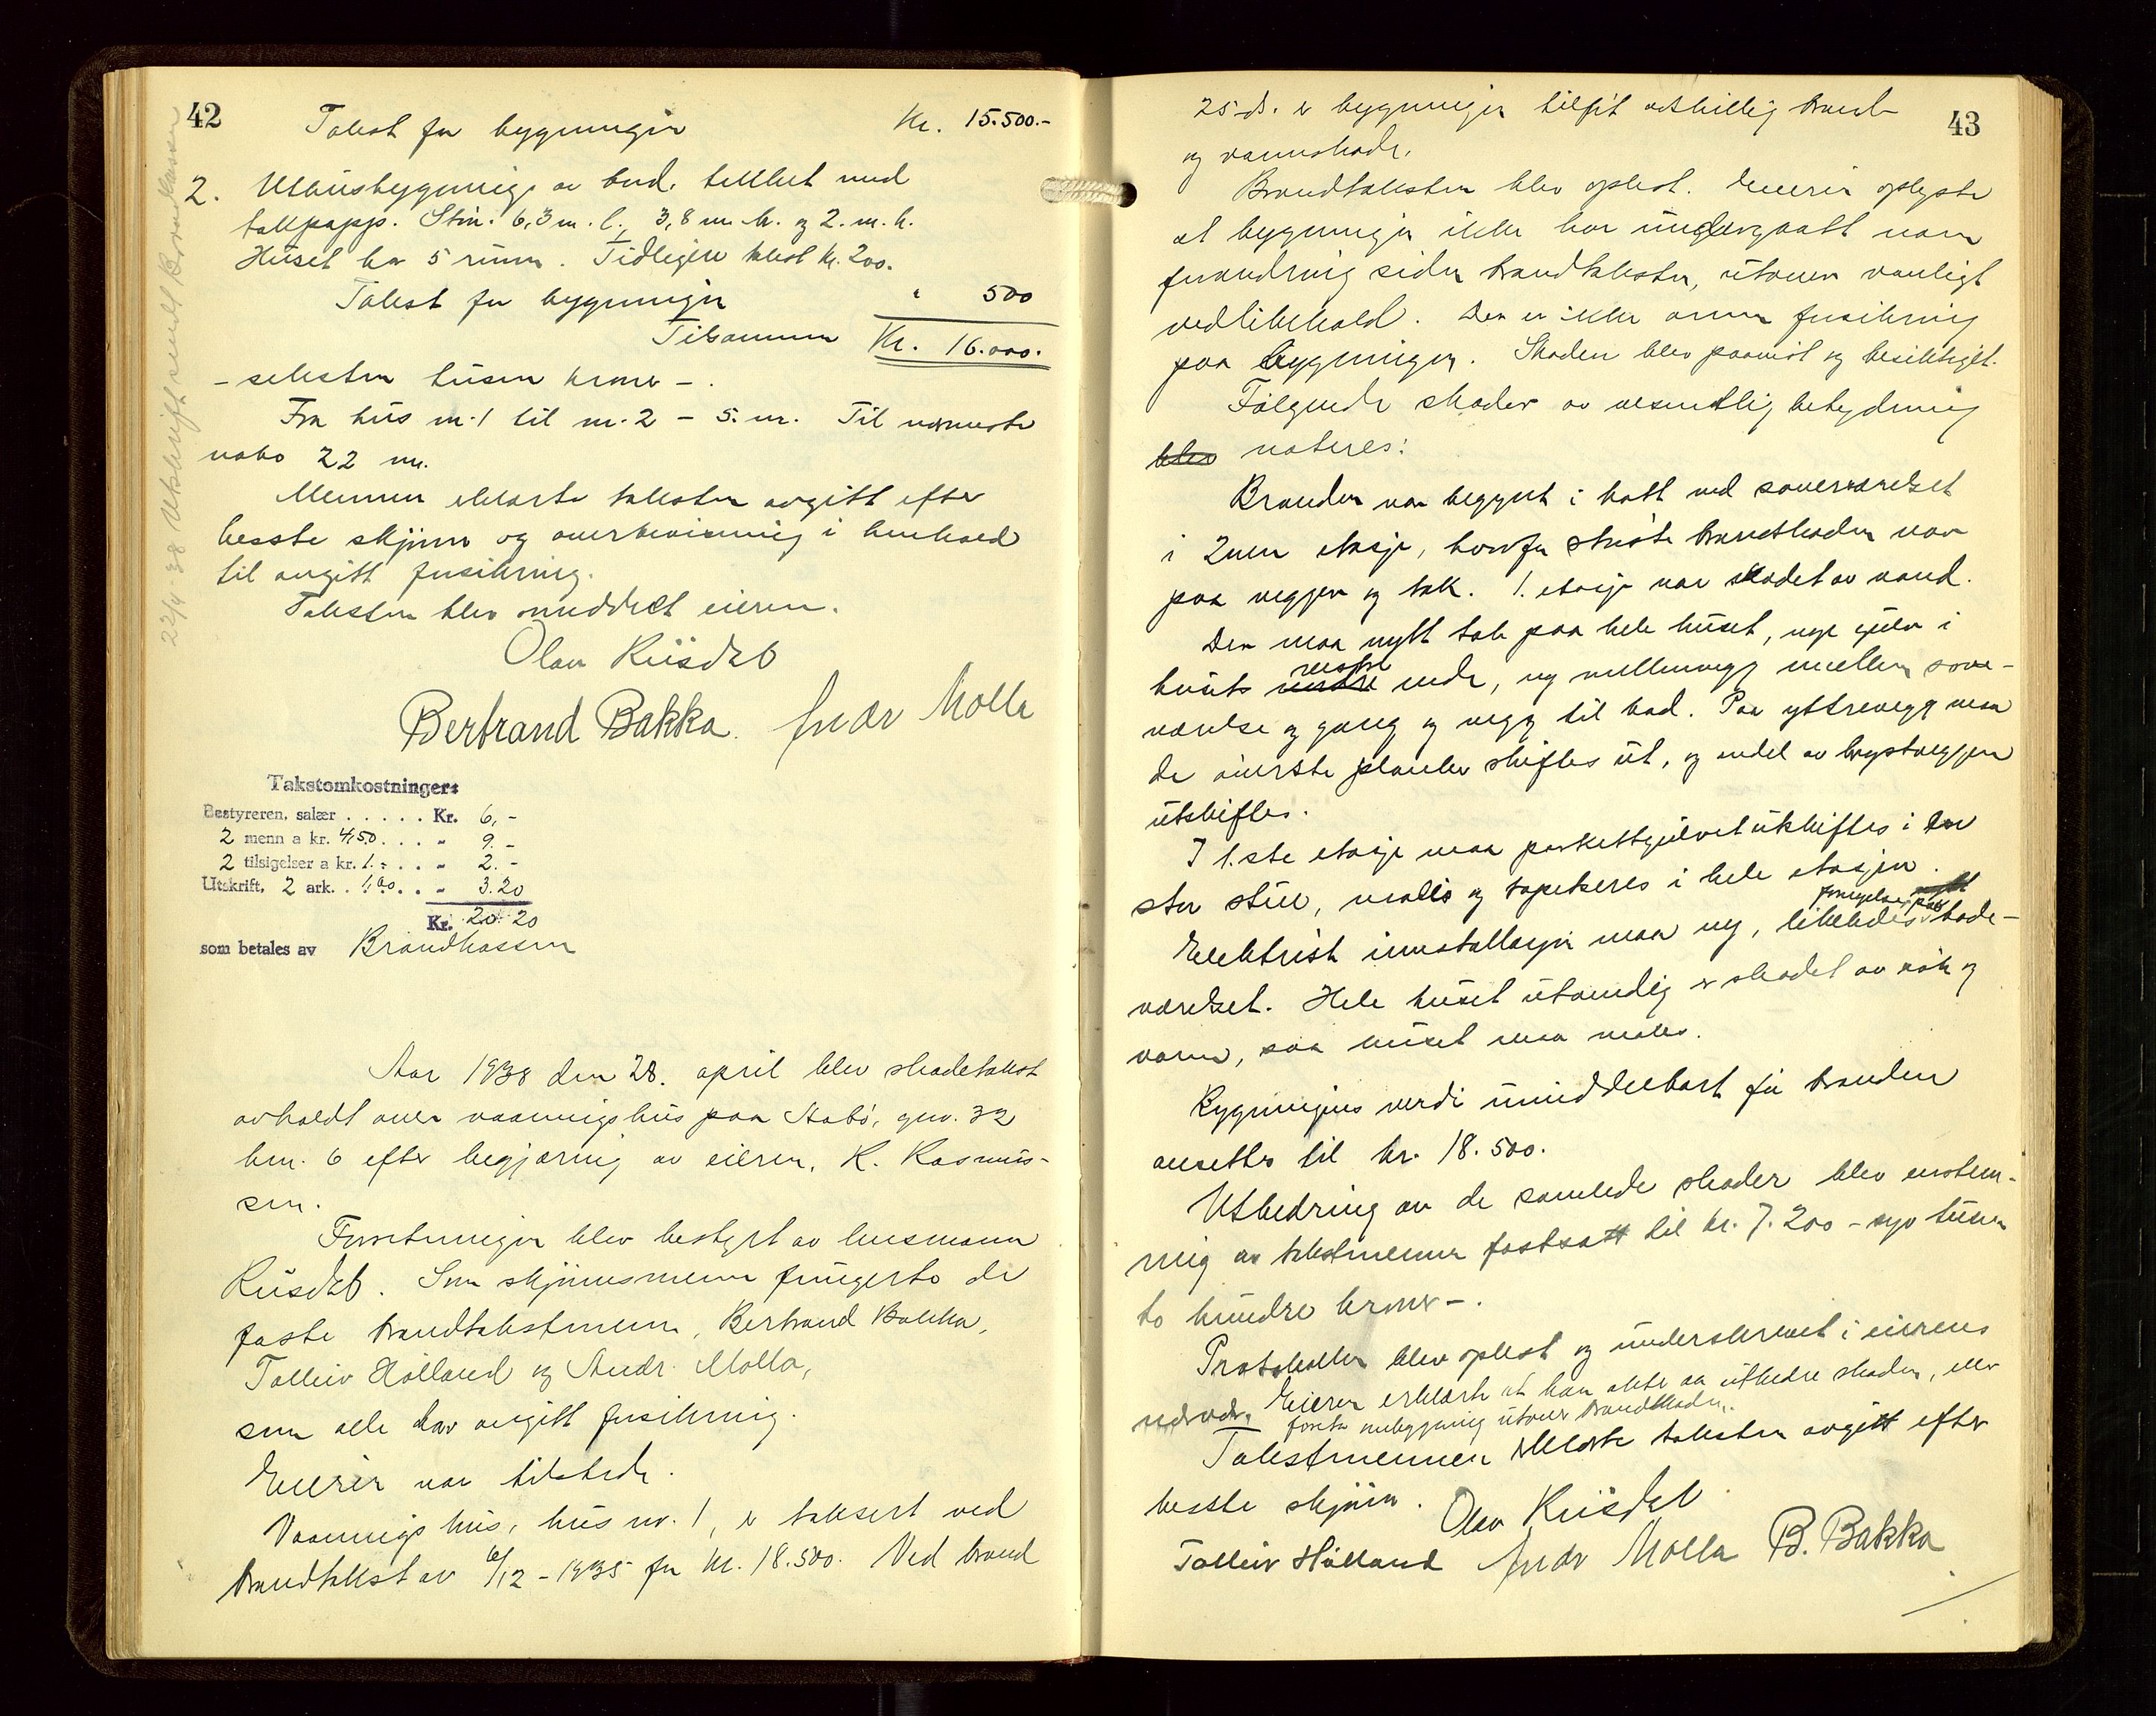 42
22/4-38 Utskrift sendt Brandkassen
Takst for bygningen Kr. 15.500.-
2. Uthusbygning av bord, tekket med
takpapp. Stør. 6,3 m. l. 3,8 m. br. og 2. m. h.
Huset har 5 rum. Tidligere takst kr. 200.
Takst for bygningen " 500
Tilsammen Kr. 16.000.
- seksten tusen kroner -.
Fra hus nr. 1 til nr. 2 - 5. m. Til nærmeste
nabo 22 m.
Mennene erklærte taksten avgitt efter
beste skjønn og overbevisning i henhold
til avgitt forsikring.
Taksten blev meddelt eieren.
Olav Rusdal
Bertrand Bakka. Andr Molla
Takstomkostninger:
Bestyreren, salær ..... Kr. 6,-
2 menn a kr. 4,50 ... " 9.-
2 tilsigelser a kr. 1.- .. " 2.-
Utskrift, 2 ark. . 1,60 .. " 3.20
Kr. 20.20
som betales av Brandkassen
Aar 1938 den 28. april blev skadetakst
avholdt over vaaningshus paa Stabø, gnr. 32
brn. 6 efter begjæring av eieren, K. Rasmus-
sen.
Forretningen blev bestyrt av lensmann
Rusdal. Som skjønnsmenn fungerte de
faste brandtakstmenn, Bertrand Bakka,
Tolleiv Hølland og Andr. Molla,
som alle har avgitt forsikring.
Eieren var tilstede.
Vaanings hus, hus nr. 1, er taksert ved
brandtakst av 6/12-1935 for kr. 18.500. Ved brand
43
25 ds. er bygningen tilføit adskillig brand-
og vannskade.
Brandtaksten blev oplest. Eieren oplyste
at bygningen ikke har undergaatt noen
forandring siden brandtaksten, utover vanligt
vedlikehold. Der er ikke annen forsikring
paa bygningen. Skaden blev paavist og besiktiget.
Følgende skader av vesentlig betydning
blev noteres:
Branden var begynt i kott ved soverværelset
i 2nen etasje, hvorfor største brandskaden var
paa veggen og tak. 1. etasje var skadet av vand.
Der maa nytt tak paa hele huset, nye gulv i
husets vestre ende, ny mellemvegg mellem sove-
værelse og gang og vegg til bad. Paa yttrevegg maa
de øverste planker skiftes ut, og endel av brystveggen
utskiftes.
I 1.ste etasje maa parkettgulvet utskiftes i den
store stue, males og tapetseres i hele etasjen.
Elektrisk innstallasjon maa ny, likeledes fornyelse paa bade-
værelset. Hele huset utvendig er skadet av røk og
vann, saa huset maa males.
Bygningens verdi umiddelbart før branden
ansettes til kr. 18.500.
Utbedring av de samlede skader blev enstem-
mig av takstmennene fastsatt til kr. 7.200 - syv tusen
to hundre kroner -.
Protokollen blev oplest og underskrevet i eierens
nærvær. Eieren erklærte at han aktet aa utbedre skaden, eller
foreta nybygning utover brandskaden.
Takstmennen erklærte taksten avgitt efter
beste skjønn. Olav Rusdal
Tolleiv Hølland Andr Molla B. Bakka